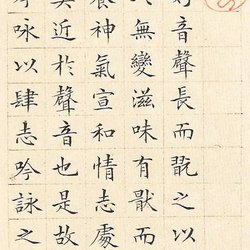 好音聲長而翫之以
無變滋味有猒而
養神氣宣和情志處
莫近於聲音也是故
詠以肆志吟詠之